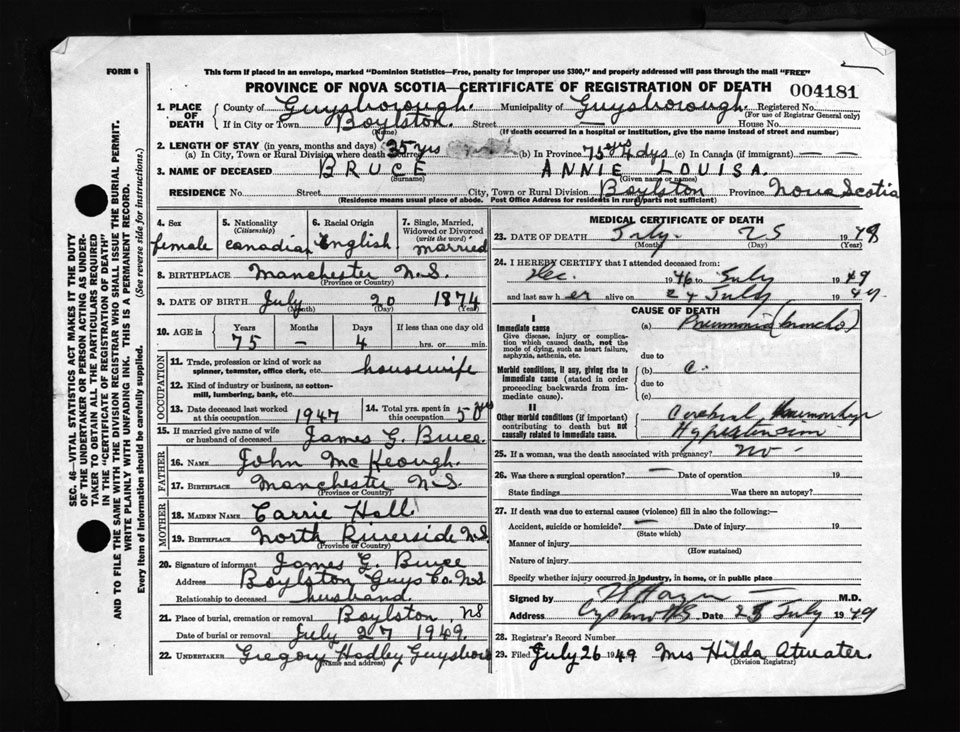 FORM 6
This form if placed in an envelope, marked "Dominion Statistics—Free, penalty for improper use $300," and properly addressed will pass through the mail "FREE"
PROVINCE OF NOVA SCOTIA—CERTIFICATE OF REGISTRATION OF DEATH 004181
SEC. 46—VITAL STATISTICS ACT MAKES IT THE DUTY
OF THE UNDERTAKER OR PERSON ACTING AS UNDER-
TAKER TO OBTAIN ALL THE PARTICULARS REQUIRED
IN THE "CERTIFICATE OF REGISTRATION OF DEATH"
AND TO FILE THE SAME WITH THE DIVISION REGISTRAR WHO SHALL ISSUE THE BURIAL PERMIT.
WRITE PLAINLY WITH UNFADING INK. THIS IS A PERMANENT RECORD.
Every item of Information should be carefully supplied. (See reverse side for instructions.)
1. PLACE OF DEATH
County of Guysborough. Municipality of Guysborough. Registered No.
(For use of Registrar General only)
If in City or Town Boylston. Street House No.
(Name) (If death occurred in a hospital or institution, give the name instead of street and number)
2. LENGTH OF STAY (in years, months and days)
(a) In City, Town or Rural Division where death occurred 35 yrs (b) In Province 75 yrs 4 dys (c) In Canada (if immigrant) — —
3. NAME OF DECEASED BRUCE ANNIE LOUISA.
(Surname) (Given name or names)
RESIDENCE No. Street City, Town or Rural Division Boylston Province Nova Scotia
(Residence means usual place of abode. Post Office Address for residents in rural parts not sufficient)
4. Sex female
5. Nationality (Citizenship) Canadian
6. Racial Origin English
7. Single, Married, Widowed or Divorced (write the word) married
8. BIRTHPLACE Manchester N.S.
(Province or Country)
9. DATE OF BIRTH July 20 1874
(Month) (Day) (Year)
10. AGE in Years Months Days If less than one day old
75 – 4 hrs. or min.
OCCUPATION
11. Trade, profession or kind of work as
spinner, teamster, office clerk, etc. housewife
12. Kind of industry or business, as cotton-
mill, lumbering, bank, etc.
13. Date deceased last worked
at this occupation. 1947
14. Total yrs. spent in
this occupation 50 yrs
15. If married give name of wife
or husband of deceased James G. Bruce.
FATHER
16. NAME John McKeough.
17. BIRTHPLACE Manchester N.S.
(Province or Country)
MOTHER
18. MAIDEN NAME Carrie Hall
19. BIRTHPLACE North Riverside N.S.
(Province or Country)
20. Signature of informant James G. Bruce
Address Boylston Guys Co. N.S.
Relationship to deceased husband.
21. Place of burial, cremation or removal Boylston, NS
Date of burial or removal July 27 1949.
22. UNDERTAKER Gregory Hadley Guysboro
(Name and address)
MEDICAL CERTIFICATE OF DEATH
23. DATE OF DEATH July. 25 19
(Month) (Day) (Year)
24. I HEREBY CERTIFY that I attended deceased from:
Dec. 1946 to July 1949
and last saw h er alive on 24 July 1949
CAUSE OF DEATH
I
Immediate cause
Give disease, injury or complica-
tion which caused death, not the
mode of dying, such as heart failure,
asphyxia, asthenia, etc.
(a) Pneumonia (broncho)
due to
Morbid conditions, if any, giving rise to
immediate cause (stated in order
proceeding backwards from im-
mediate cause).
(b)
due to
(c)
II
Other morbid conditions (if important)
contributing to death but not
causally related to immediate cause.
Cerebral Haemorrhage
Hypertension
25. If a woman, was the death associated with pregnancy? no -
26. Was there a surgical operation? — Date of operation 19
State findings Was there an autopsy?
27. If death was due to external causes (violence) fill in also the following:—
Accident, suicide or homicide? — Date of injury 19
(State which)
Manner of injury
(How sustained)
Nature of injury
Specify whether injury occurred in industry, in home, or in public place
Signed by M.D.
Address Date 25 July 1949
28. Registrar's Record Number
29. Filed July 26 1949 Mrs Hilda Atwater.
(Division Registrar)